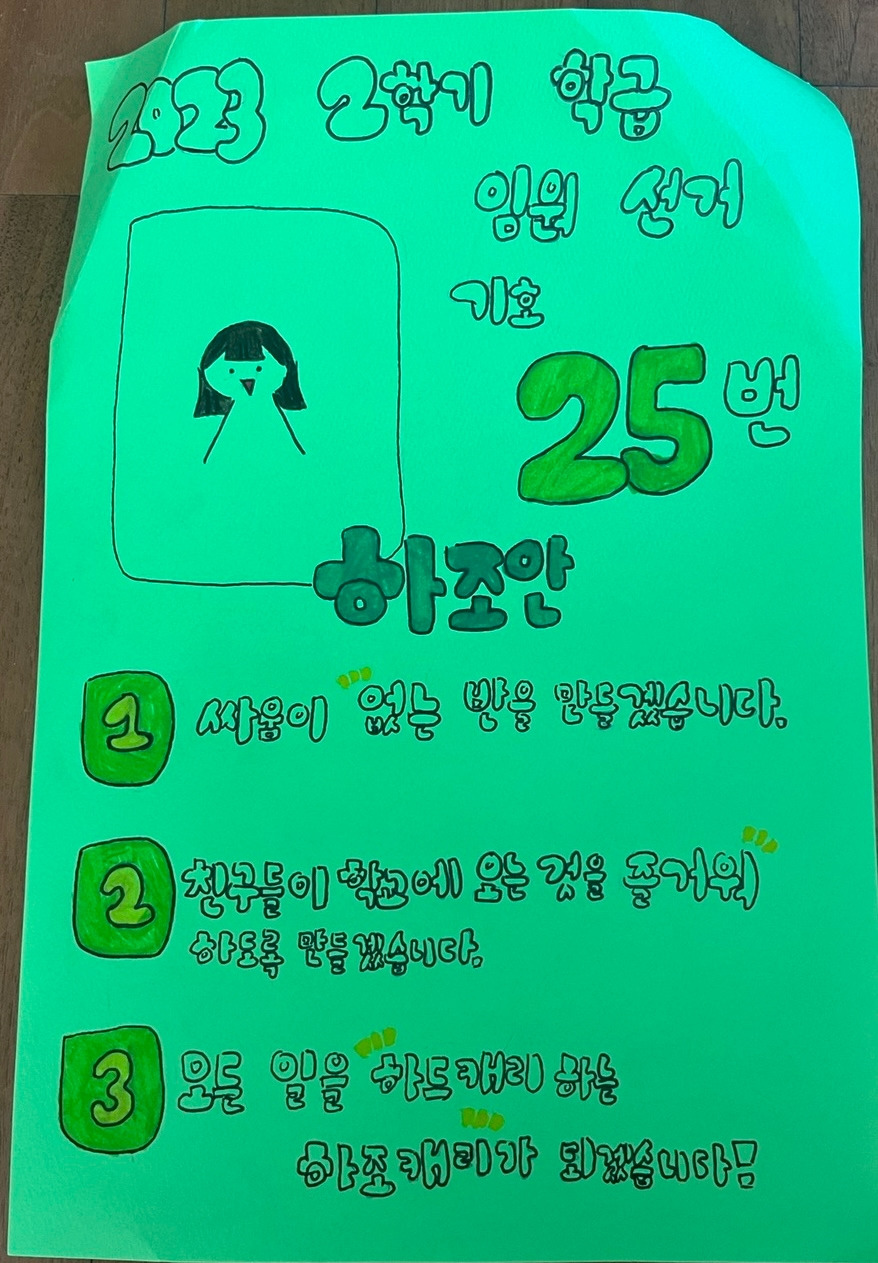 2023 2학기 학급
임원 선거
기호
25번
하조안
1 싸움이 없는 반을 만들겠습니다.
2 친구들이 학교에 오는 것을 즐거워
하도록 만들겠습니다.
3 모든 일을 하드캐리 하는
하조캐리가 되겠습니다!